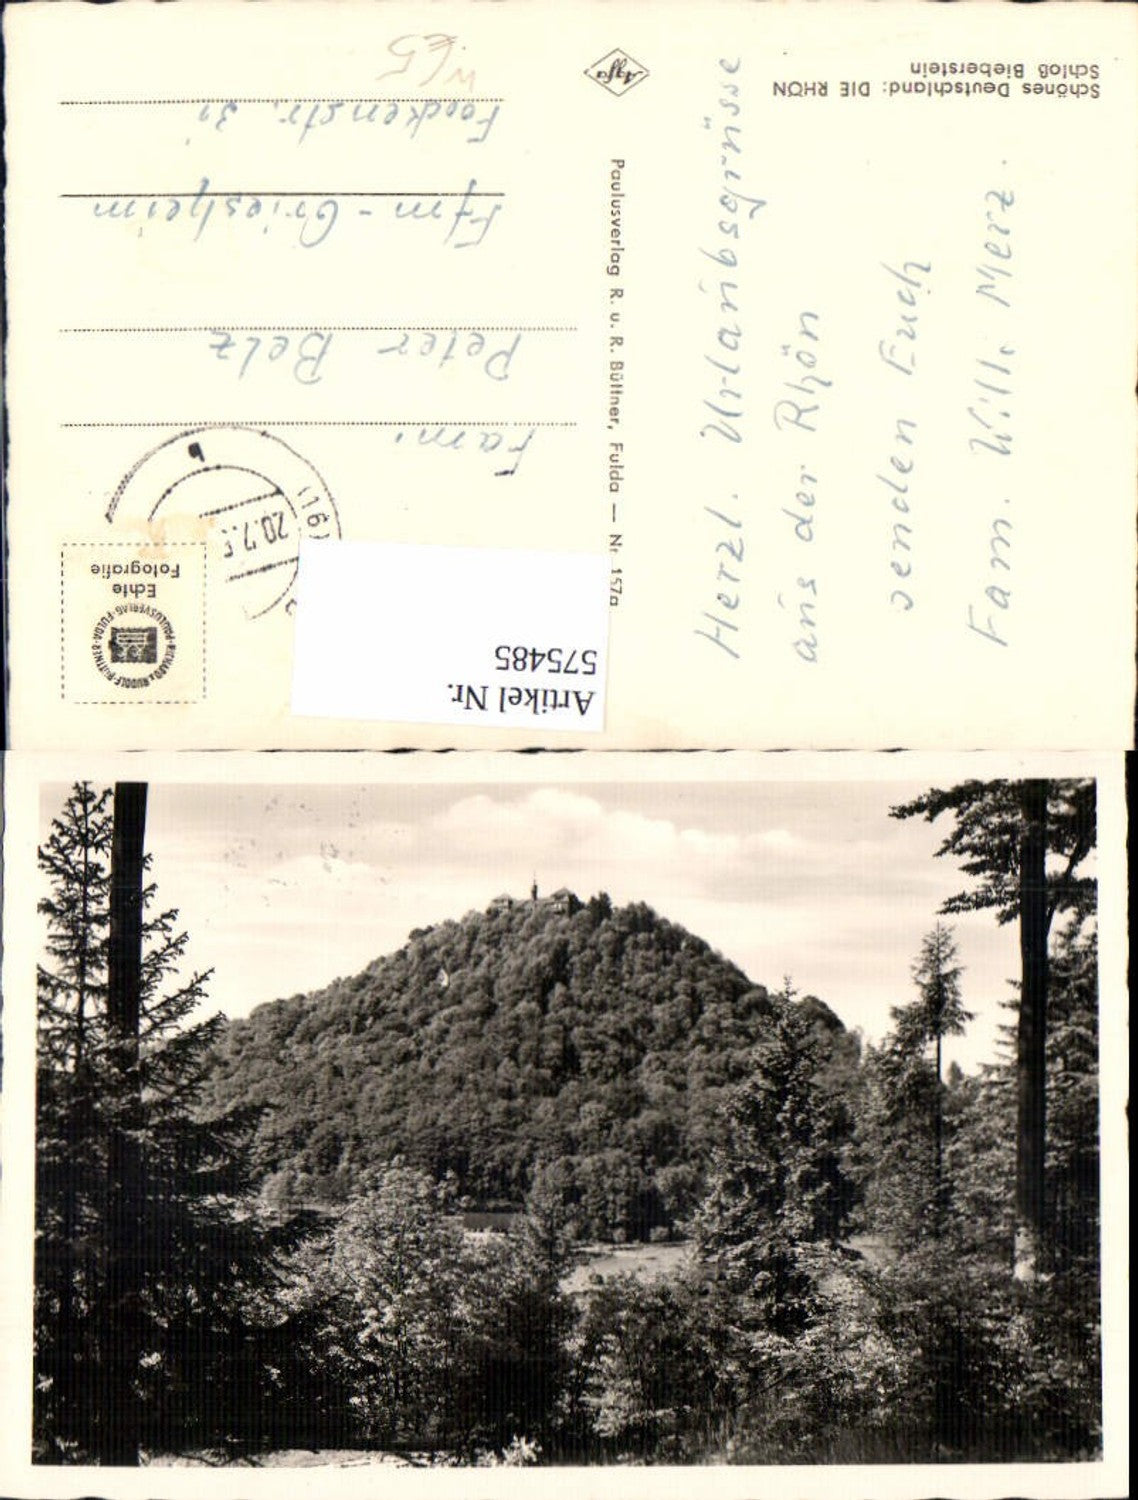 Schönes Deutschland: DIE RHÖN
Schloß Bieberstein
Herzl. Urlaubsgrüsse
aus der Rhön
senden Euch
Fam. Willi Merz.
Agfa
Paulusverlag R. u. R. Büttner, Fulda — Nr. 157a
Echte
Fotografie
(16)
20.7.5
b
Fam.
Peter Belz
Ffm-Griesheim
Artikel Nr.
575485